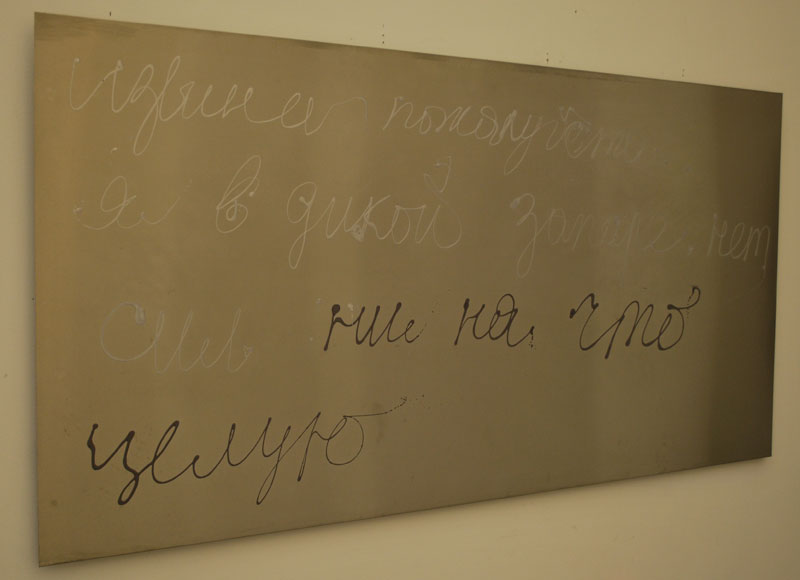 извини пожалуйста
я в дикой запаре нет
сил ни на что
целую